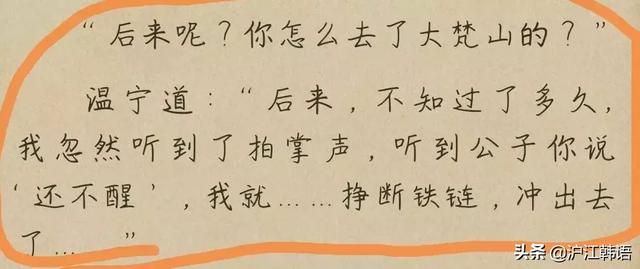 “后来呢？你怎么去了大梵山的？”
温宁道：“后来，不知过了多久，
我忽然听到了拍掌声，听到公子你说
‘还不醒’，我就……挣断铁链，冲出去
了……”
头条 @沪江韩语